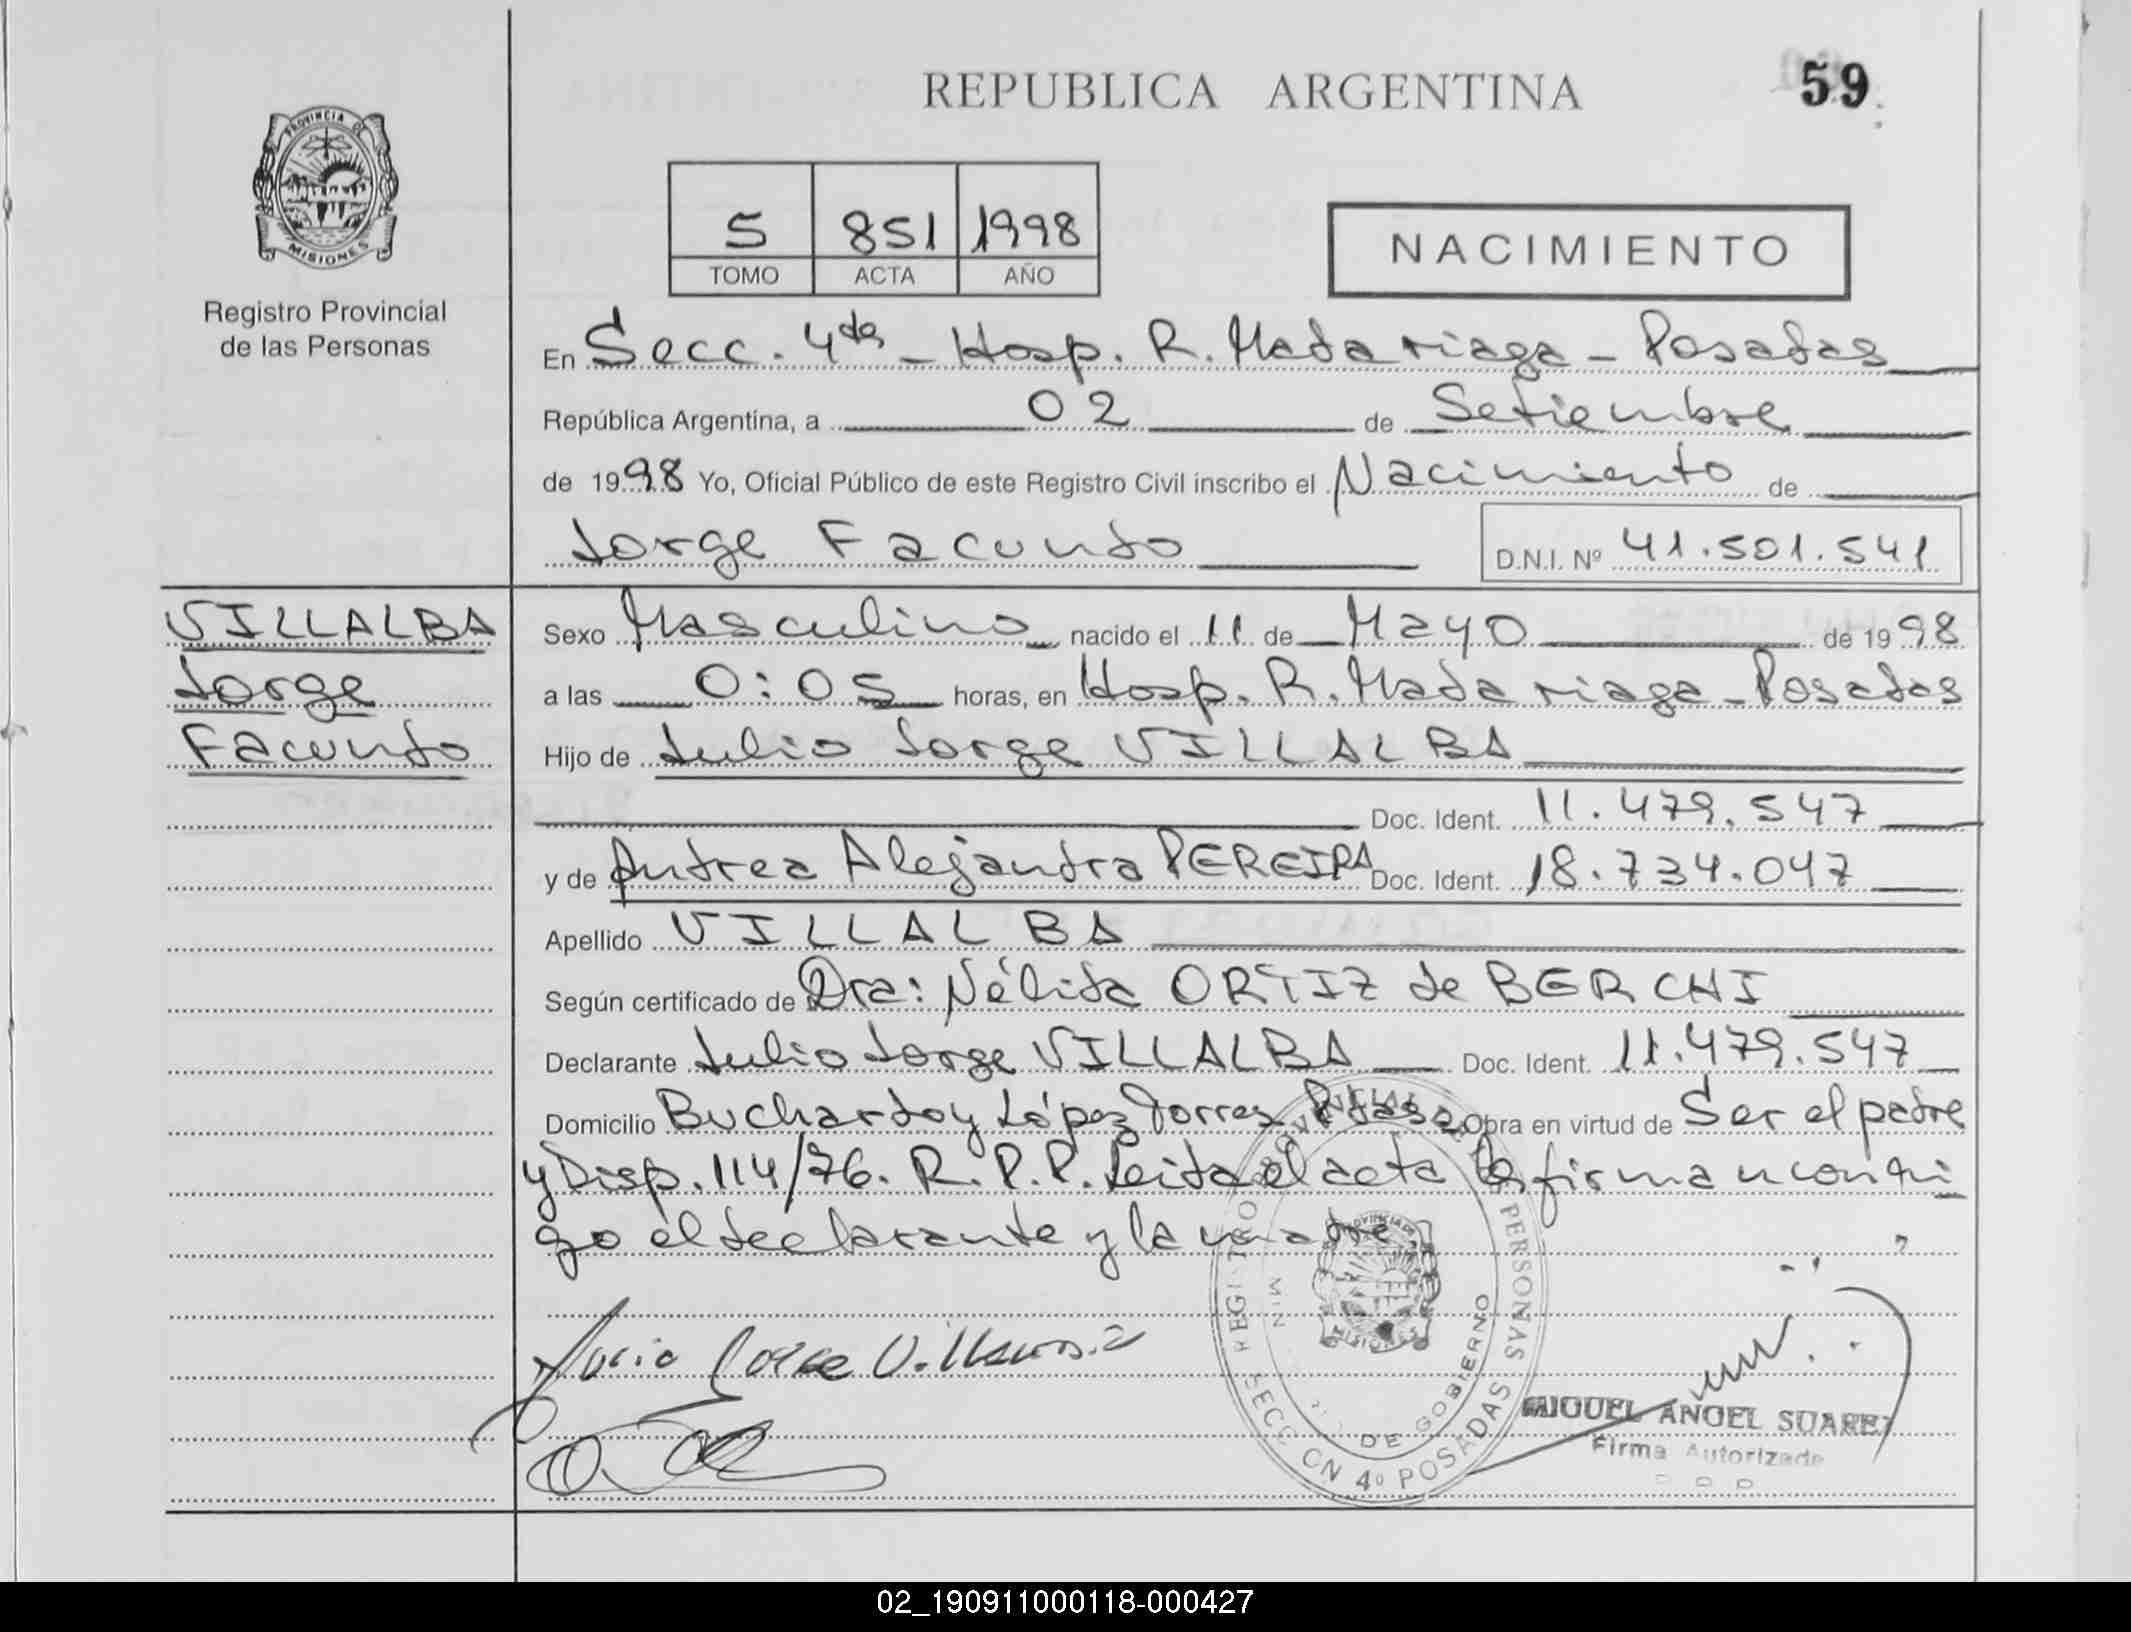 REPUBLICA ARGENTINA
59
PROVINCIA DE
MISIONES
Registro Provincial
de las Personas
5 851 1998
TOMO ACTA AÑO
NACIMIENTO
En Secc. 4ta - Hosp. R. Madariaga - Posadas
República Argentina, a 02 de Setiembre
de 1998 Yo, Oficial Público de este Registro Civil inscribo el Nacimiento de
Jorge Facundo
D.N.I. Nº 41.501.541
VILLALBA
Jorge
Facundo
Sexo Masculino nacido el 11 de Mayo de 1998
a las 0:05 horas, en Hosp. R. Madariaga - Posadas
Hijo de Julio Jorge VILLALBA
Doc. Ident. 11.479.547
y de Andrea Alejandra PEREIRA Doc. Ident. 18.734.047
Apellido VILLALBA
Según certificado de Dra: Nélida ORTIZ de BERCHI
Declarante Julio Jorge VILLALBA Doc. Ident. 11.479.547
Domicilio Buchardo y López Torres Obra en virtud de Ser el padre
y Disp. 114/76. R.P.P. Leida el acta la firman conmi
go el declarante y la madre.
Julio Jorge Villalba
SECCION 4º POSADAS
DE GOBIERNO
PERSONAS
MIGUEL ANGEL SUAREZ
Firma Autorizada
02_190911000118-000427